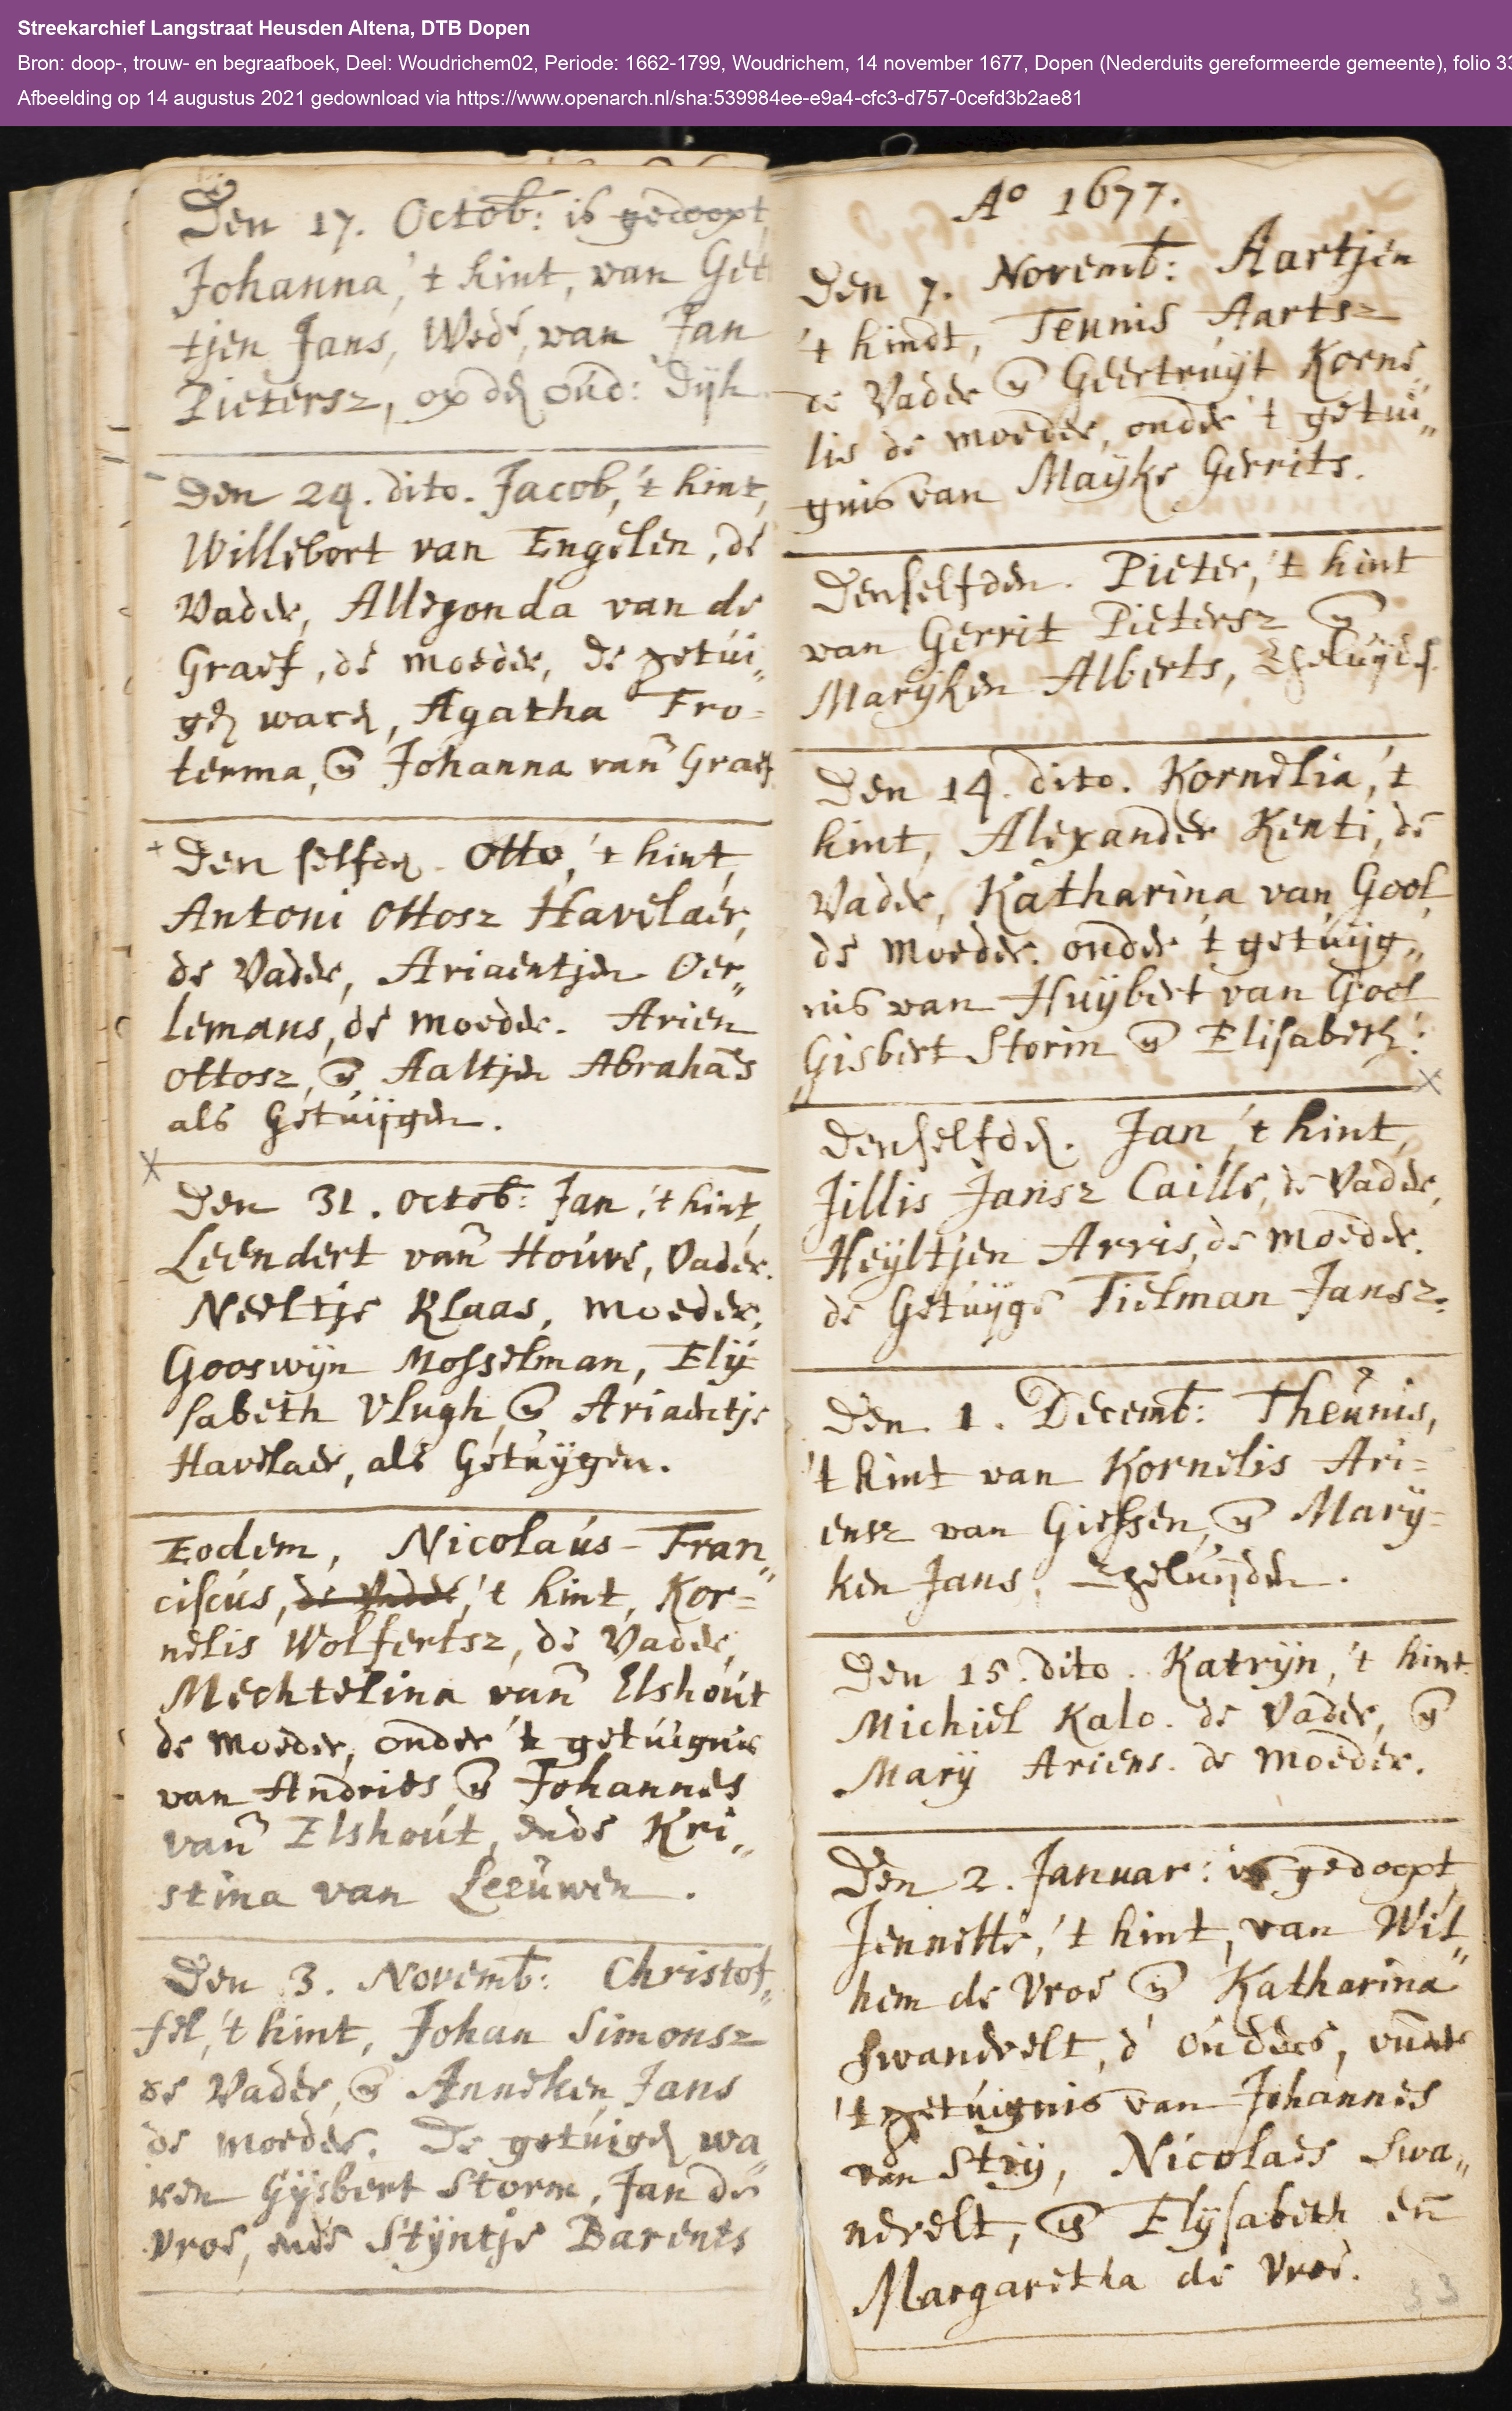 Streekarchief Langstraat Heusden Altena, DTB Dopen
Bron: doop-, trouw- en begraafboek, Deel: Woudrichem02, Periode: 1662-1799, Woudrichem, 14 november 1677, Dopen (Nederduits gereformeerde gemeente), folio 33
Afbeelding op 14 augustus 2021 gedownload via https://www.openarch.nl/sha:539984ee-e9a4-cfc3-d757-0cefd3b2ae81
Den 17. Octob: is gedoopt
Johanna, 't kint, van Geer
tjen Jans, Wedᵉ, van Jan
Pietersz, op den oud: Dijk.
Den 24. dito. Jacob, 't kint,
Willebort van Engelen, de
Vader, Allegonda van de
Graef, de moeder, de getui„
gen waren, Agatha Fro=
terma, en Johanna van Graef
Den selfden. Otto, 't kint,
Antoni Ottosz Havelaer,
de Vader, Ariaentjen Oer„
lemans, de moeder. Arien
Ottosz, en Aaltjen Abrahās
als Getuijgen.
Den 31. octob: Jan, 't kint,
Leendert van Houwe, Vader.
Neeltje Klaas, moeder,
Gooswijn Mosselman, Elij
sabeth Vlugh, en Ariaentje
Havelaer, als Getuijgen.
Eodem, Nicolaus-Fran„
ciscus, de Vader, 't kint, Kor=
nelis Wolfertsz, de Vader,
Mechtelina van Elshout
de Moeder, onder 't getuignis
van Andries en Johannes
van Elshout, ende Kri„
stina van Leeuwen.
Den 3. Novemb: Christof„
fel, 't kint, Johan Simonsz
de Vader, en Anneken Jans
de moeder. De getuigen wa„
ren Gijsbert Storm, Jan de
Vroe, ende Stijntje Barents
Aᵒ 1677.
Den 7. Novemb: Aartjen
't kindt, Teunis Aartsz
de Vader en Geertruijt Korne„
lis de moeder, onder 't getui„
gnis van Maijke Gerrits.
Denselfden. Pieter, 't kint
van Gerrit Pietersz en
Marijken Alberts, Egeluijd.
Den 14. dito. Kornelia, 't
kint, Alexander Kenti, de
Vader, Katharina van Gool,
de Moeder. onder 't getuijg„
nis van Huijbert van Gool
Gisbert Storm en Elisabeth:
Denselfden. Jan, 't kint,
Jillis Jansz Caille, de Vader,
Heyltjen Arris, de moeder.
de Getuijge Tielman Jansz.
Den. 1. Decemb: Theunis,
't kint van Kornelis Ari=
ensz van Giessen, en Marij=
ken Jans, Egeluijden.
Den 15. dito. Katrijn, 't kint
Michiel Kalo. de Vader, en
Marij Ariens. de moeder.
Den 2. Januar: is gedoopt
Jennette, 't kint, van Wil„
hem de Vroe en Katharina
Swanevelt, d' ouders, onder
't getuignis van Johannes
van Strij, Nicolaes Swa„
nevelt, en Elijsabeth en
Margaretha de Vroe.
33